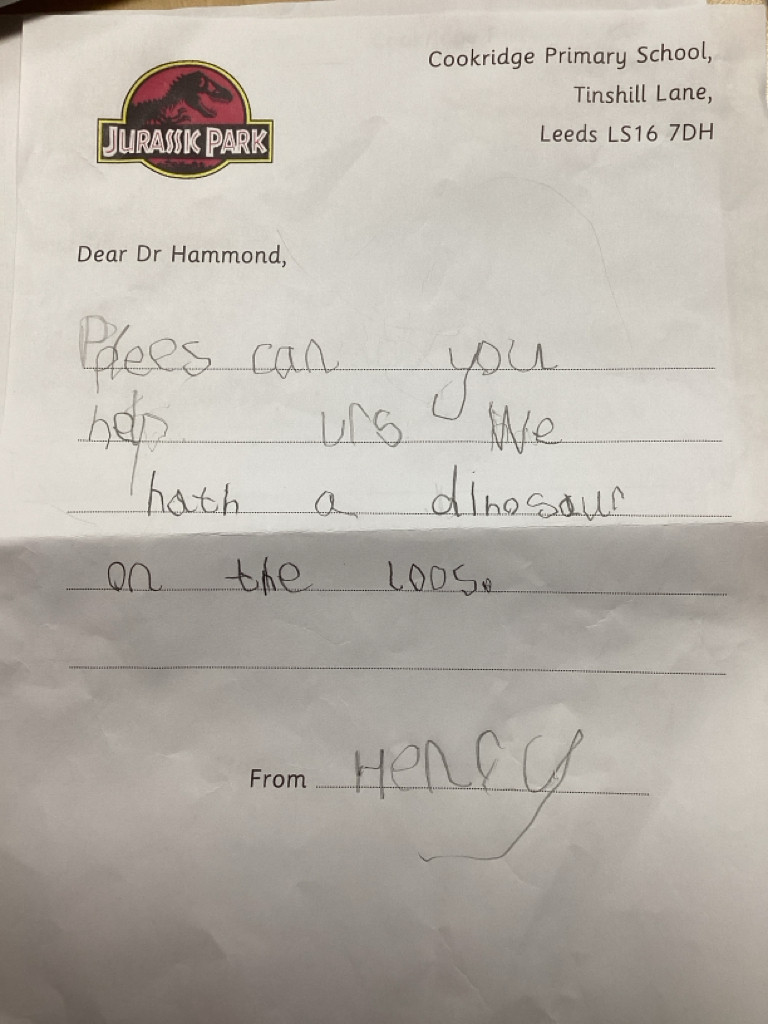 Cookridge Primary School,
Tinshill Lane,
Leeds LS16 7DH
JURASSIC PARK
Dear Dr Hammond,
Plees can you
help urs We
hath a dinosaur
on the loos.
From Henry